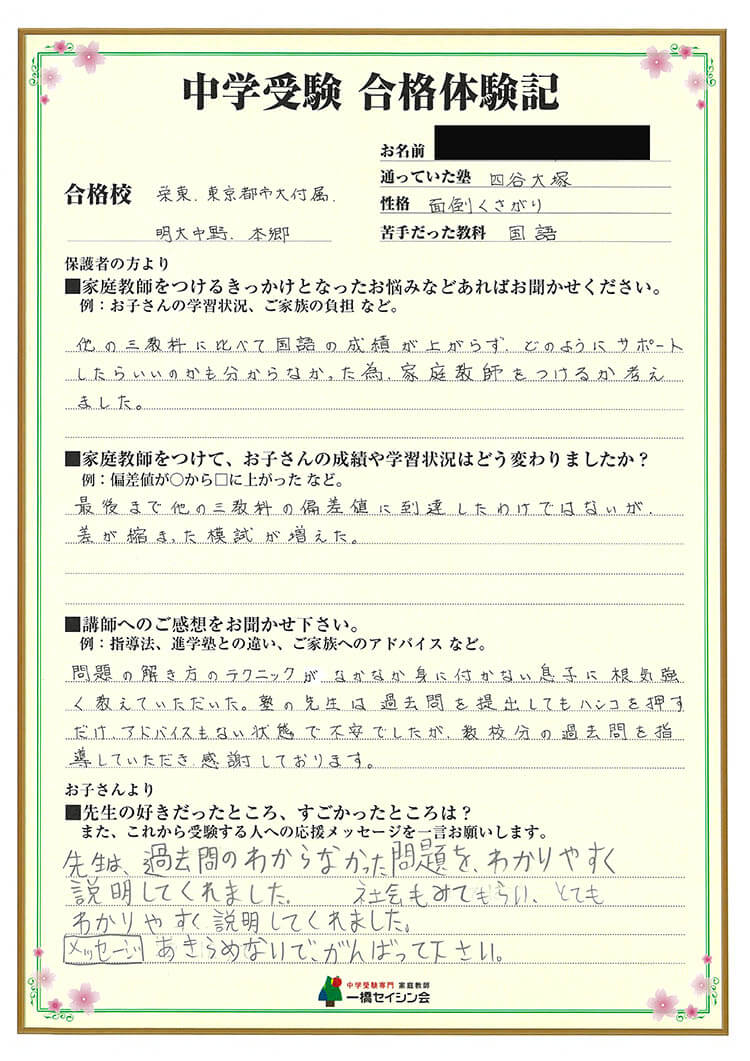 中学受験 合格体験記
お名前
合格校 栄東、東京都市大付属、
明大中野、本郷
通っていた塾 四谷大塚
性格 面倒くさがり
苦手だった教科 国語
保護者の方より
■家庭教師をつけるきっかけとなったお悩みなどあればお聞かせください。
例：お子さんの学習状況、ご家族の負担 など。
他の三教科に比べて国語の成績が上がらず、どのようにサポート
したらいいのかも分からなかった為、家庭教師をつけるか考え
ました。
■家庭教師をつけて、お子さんの成績や学習状況はどう変わりましたか？
例：偏差値が○から□に上がった など。
最後まで他の三教科の偏差値に到達したわけではないが、
差が縮まった模試が増えた。
■講師へのご感想をお聞かせ下さい。
例：指導法、進学塾との違い、ご家族へのアドバイス など。
問題の解き方のテクニックが なかなか身に付かない息子に根気強
く教えていただいた。塾の先生は過去問を提出してもハンコを押す
だけ、アドバイスもない状態で不安でしたが、数校分の過去問を指
導していただき感謝しております。
お子さんより
■先生の好きだったところ、すごかったところは？
また、これから受験する人への応援メッセージを一言お願いします。
先生は、過去問のわからなかった問題を、わかりやすく
説明してくれました。 社会もみてもらい、とても
わかりやすく説明してくれました。
メッセージ あきらめないで、がんばって下さい。
中学受験専門 家庭教師
一橋セイシン会